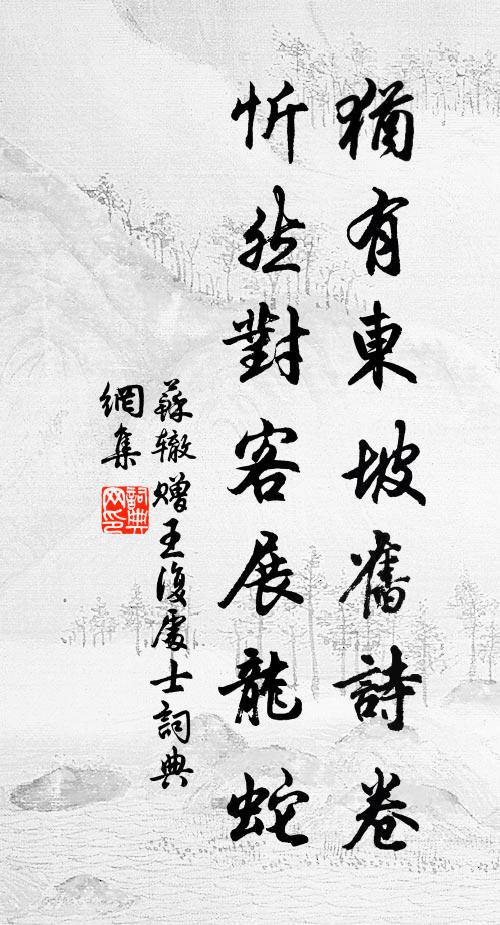 猶有東坡舊詩卷
忻然對客展龍蛇
蘇轍贈王復處士詞典
網集
詞典
网印